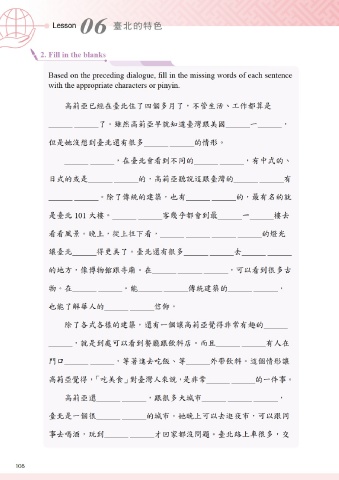 Lesson 06 臺北的特色
2. Fill in the blanks
Based on the preceding dialogue, fill in the missing words of each sentence
with the appropriate characters or pinyin.
高莉亞已經在臺北住了四個多月了，不管生活、工作都算是
______ ______了。雖然高莉亞早就知道臺灣跟美國______一______，
但是她沒想到臺北還有很多______ ______的情形。
______ ______，在臺北會看到不同的______ ______，有中式的、
日式的或是______ ______的，高莉亞聽說這跟臺灣的______ ______有
______ ______。除了傳統的建築，也有______ ______的，最有名的就
是臺北 101 大樓。______ ______客幾乎都會到最______一______樓去
看看風景。晚上，從上往下看，______ ______ ______ ______的燈光
讓臺北______得更美了。臺北還有很多______ ______去______ ______
的地方，像博物館跟寺廟。在______ ______ ______，可以看到很多古
物。在______ ______，能______ ______傳統建築的______ ______，
也能了解華人的______ ______信仰。
除了各式各樣的建築，還有一個讓高莉亞覺得非常有趣的______
______，就是到處可以看到餐廳跟飲料店。而且______ ______有人在
門口______ ______，等著進去吃飯、等______外帶飲料。這個情形讓
高莉亞覺得，「吃美食」對臺灣人來說，是非常______ ______的一件事。
高莉亞還______ ______，跟很多大城市______ ______ ______，
臺北是一個很______ ______的城市。她晚上可以去逛夜市，可以跟同
事去喝酒，玩到______ ______才回家都沒問題。臺北路上車很多，交
108